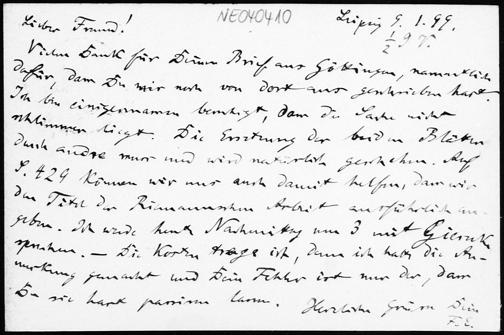 NE040410
Lieber Freund!
Leipzig 9. 1. 99.
½ 9 V.
Vielen Dank für Deinen Brief aus Göttingen, namentlich
dafür, dass Du mir noch von dort aus geschrieben hast.
Ich bin einigermassen beruhigt, dass die Sache nicht
schlimmer liegt. Die Ersetzung der beiden Blätter
durch andre muss und wird natürlich geschehen. Auf
S. 429 können wir uns auch damit helfen, dass wir
den Titel der Riemannschen Arbeit ausführlich an-
geben. Ich werde heut Nachmittag um 3 mit
sprechen. — Die Kosten trage ich, denn ich hatte die An-
merkung gemacht und Dein Fehler ist nur der, dass
Du sie hast passiren lassen. Herzliche Grüsse Dein
F. E.